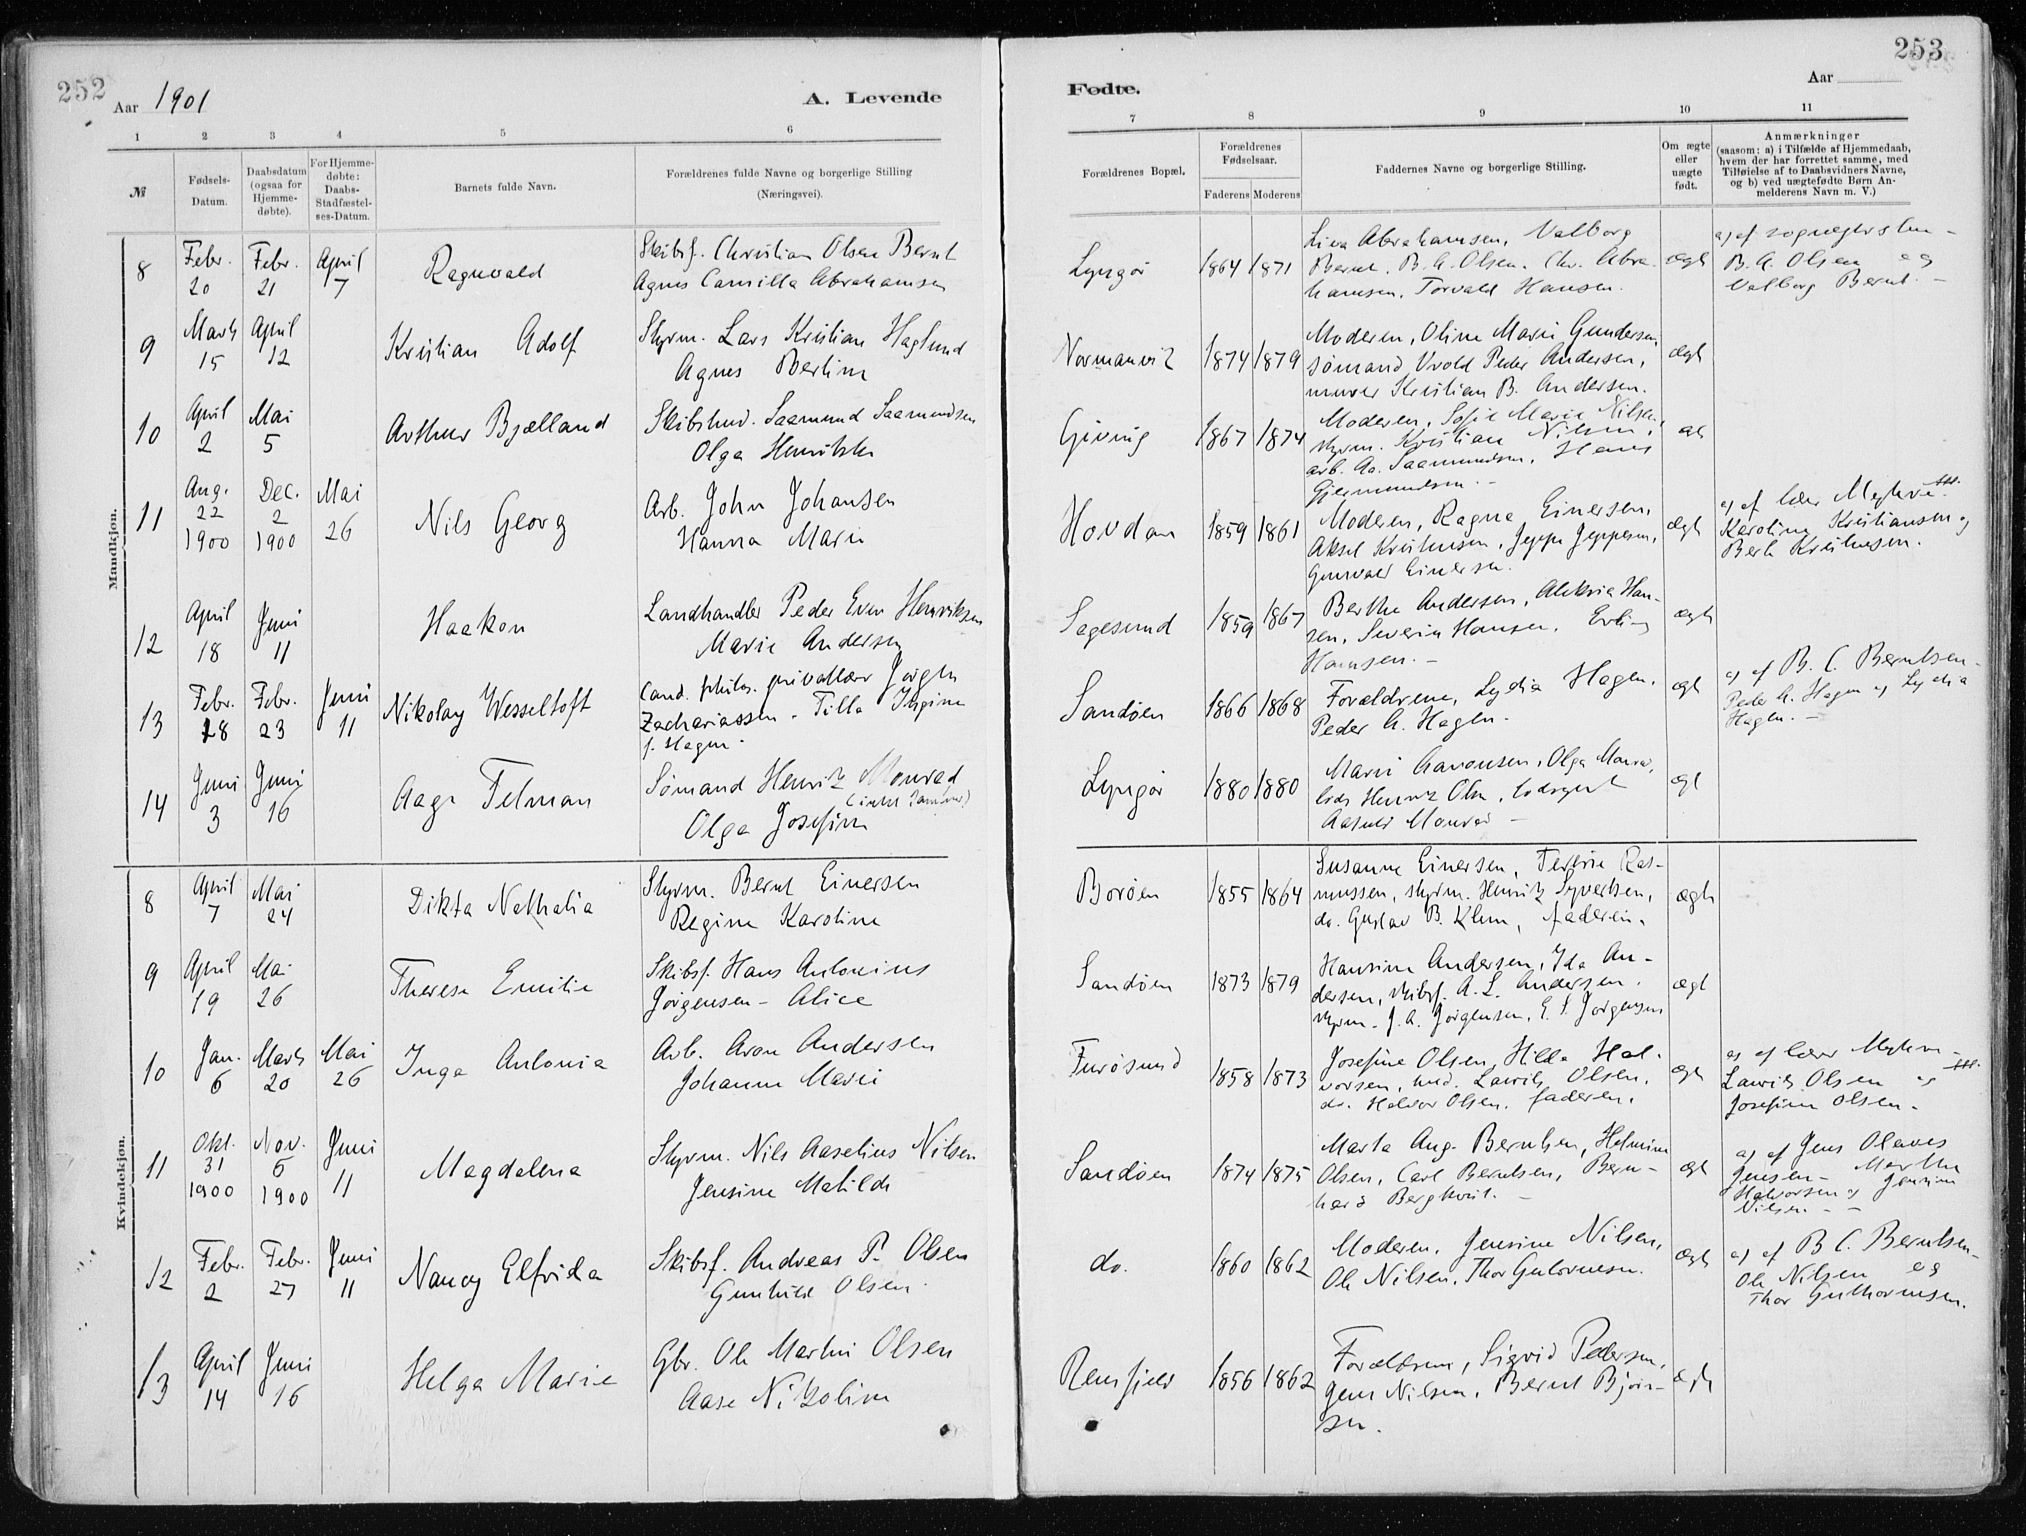 252
Aar 1901
A. Levende
1 2 3 4 5 6
№
Fødsels-
Datum.
Daabsdatum
(ogsaa for
Hjemme-
døbte).
For Hjemme-
døbte:
Daabs-
Stadfæstel-
ses-Datum.
Barnets fulde Navn.
Forældrenes fulde Navne og borgerlige Stilling
(Næringsvei).
Mandkjøn.
8
Febr.
20
Febr.
21
April
7
Ragnvald
Skibsf. Christian Olsen Bernt
Agnes Camilla Abrahamsen
9
Marts
15
April
12
Kristian Adolf
Styrm. Lars Kristian Haglund
Agnes Bertine
10
April
2
Mai
5
Arthur Bjælland
Skibstmd. Saamund Saamundsen
Olga Henrikke
11
Aug.
22
1900
Dec.
2
1900
Mai
26
Nils Georg
Arb. John Johansen
Hanna Marie
12
April
18
Juni
11
Haakon
Landhandler Peder Even Henriksen
Marie Andersen
13
Febr.
18
Febr.
23
Juni
11
Nikolay Wesseltoft
Cand. philos. privatlærer Jørgen
Zachariassen - Tilla
f. Hagen.
14
Juni
3
Juni
16
Aage Telman
Sømand Henrik Monrad
Olga Josefine
Kvindekjøn.
8
April
7
Mai
24
Dikta Nathalia
Styrm. Bernt Einersen
Regine Karoline
9
April
19
Mai
26
Therese Emilie
Skibsf. Hans Antonius
Jørgensen - Alice
10
Jan.
6
Marts
20
Mai
26
Inga Antonia
Arb. Aron Andersen
Johanne Marie
11
Okt.
31
1900
Nov.
6
1900
Juni
11
Magdalena
Styrm. Nils Aaselius Nilsen
Jensine Matilde
12
Febr.
2
Febr.
27
Juni
11
Nancy Elfrida
Skibsf. Andreas P. Olsen
Gunhild Olsen.
13
April
14
Juni
16
Helga Marie
Gbr. Ole Martin Olsen
Aase Nikoline
253
Fødte.
Aar
7 8 9 10 11
Forældrenes Bopæl.
Forældrenes
Fødselsaar.
Faderens Moderens
Faddernes Navne og borgerlige Stilling.
Om ægte
eller
uægte
født.
Anmærkninger
(saasom: a) i Tilfælde af Hjemmedaab,
hvem der har forrettet samme, med
Tilføielse af to Daabsvidners Navne,
og b) ved uægtefødte Børn An-
melderens Navn m. V.)
Lyngør
1864 1871
Lina Abrahamsen, Valborg
Bernt. B. A. Olsen. Chr. Abra-
hamsen, Torvald Hansen.
ægte
a) af sognepresten -
B. A. Olsen og
Valborg Bernt. -
Normanvik
1874 1879
Moderen, Oline Marie Gundersen,
sømand Peder Andersen,
murer Kristian B. Andersen.
ægte
Giving
1867 1874
Moderen, Sofie Marie Nilsen,
styrm. Kristian Nilsen,
arb. Aa. Saamundsen, Hans
Gjermundsen. -
Hovdan
1859 1861
Moderen, Ragna Einersen,
Aksel Kristensen, Jeppe Jeppesen,
Gunvald Einersen.
ægte
a) af lærer
Karoline Kristiansen og
Kristensen.
Sagesund
1859 1867
Berthe Andersen, Han-
sen, Severin Hansen, Erling
Hansen. -
ægte
Sandøen
1866 1868
Forældrene, Lydia Hagen.
Peder A. Hagen.
ægte
a) af B. C. Berntsen -
Peder A. Hagen og Lydia
Hagen. -
Lyngør
1880 1880
Marie Aanonsen, Olga Monrad,
lods Henrik Olsen,
Monrad -
Borøen
1855 1864
Susanne Einersen, Terese Ras-
mussen, styrm. Henrik Syvertsen,
do. Gustav B. Klem, faderen.
ægte
Sandøen
1873 1879
Hansine Andersen, Ida An-
dersen, skibsf. A. L. Andersen,
styrm. J. A. Jørgensen, E. S. Jørgensen
ægte
Furøsund
1858 1873
Josefine Olsen, Hilda Hal-
vorsen, Laurits Olsen,
do. Halvor Olsen, faderen.
ægte
a) af lærer
Laurits Olsen og
Josefine Olsen.
Sandøen
1874 1875
Marta Aug. Berntsen, Helmine
Olsen, Carl Berntsen, Bern-
hard Berghvist. -
ægte
a) af Jens Olaves
Jensen - Marthe
Halvorsen og Jensine
Nilsen. -
do.
1860 1862
Moderen, Jensine Nilsen,
Ole Nilsen, Thor Gutormsen.
ægte
a) af B. C. Berntsen -
Ole Nilsen og
Thor Guthormsen.
Rensfjeld
1856 1862
Forældrene, Sigrid Pedersen,
Jens Nilsen, Bernt Bjørn-
sen.
ægte